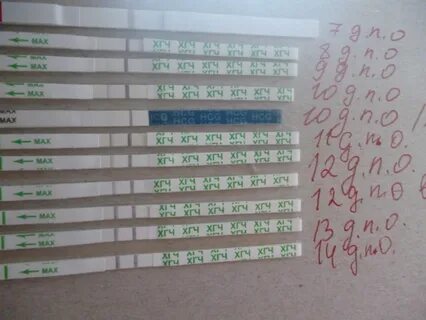 7 д.п.о
← MAX ХГЧ ХГЧ ХГЧ ХГЧ ХГЧ ХГЧ 8 д.п.о
← MAX ХГЧ ХГЧ ХГЧ ХГЧ ХГЧ ХГЧ 9 д.п.о
← MAX ХГЧ ХГЧ ХГЧ ХГЧ ХГЧ ХГЧ 10 д.п.о
MAX HCG HCG HCG HCG HCG 10 д.п.о
← MAX ХГЧ ХГЧ ХГЧ ХГЧ ХГЧ ХГЧ 11 д.п.о.
← MAX ХГЧ ХГЧ ХГЧ ХГЧ ХГЧ ХГЧ 12 д.п.о.
← MAX ХГЧ ХГЧ ХГЧ ХГЧ ХГЧ ХГЧ 12 д.п.о
← MAX ХГЧ ХГЧ ХГЧ ХГЧ ХГЧ ХГЧ
← MAX ХГЧ ХГЧ ХГЧ ХГЧ ХГЧ ХГЧ 13 д.п.о.
← MAX ХГЧ ХГЧ ХГЧ ХГЧ ХГЧ ХГЧ 14 д.п.о.